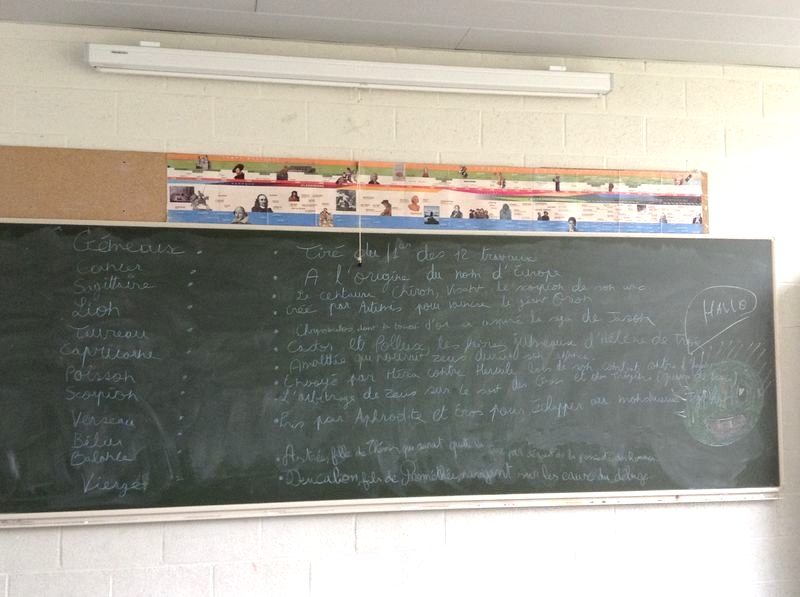 Gémeaux
Cancer
Sagittaire
Lion
Taureau
Capricorne
Poisson
Scorpion
Verseau
Bélier
Balance
Vierge
• Tiré du 1er des 12 travaux
• A l'origine du nom d'Europe
• Le centaure Chiron, visant le scorpion de son arc
• créé par Artémis pour vaincre le géant Orion
• Chrysomallos dont la toison d'or a inspiré la saga de Jason
• Castor et Pollux, les frères jumeaux d'Hélène de Troie
• Amalthée qui nourrit Zeus durant son enfance
• Envoyé par Héra contre Hercule lors de son combat contre l'
• L'arbitrage de Zeus sur le sort des Grecs et des Troyens
• Pris par Aphrodite et Eros pour échapper au monstrueux Typhon
• Astrée, fille de Thémis qui aurait quitté la terre par dégoût de la
• Deucalion, fils de Prométhée, naviguant sur les eaux du déluge
HALLO